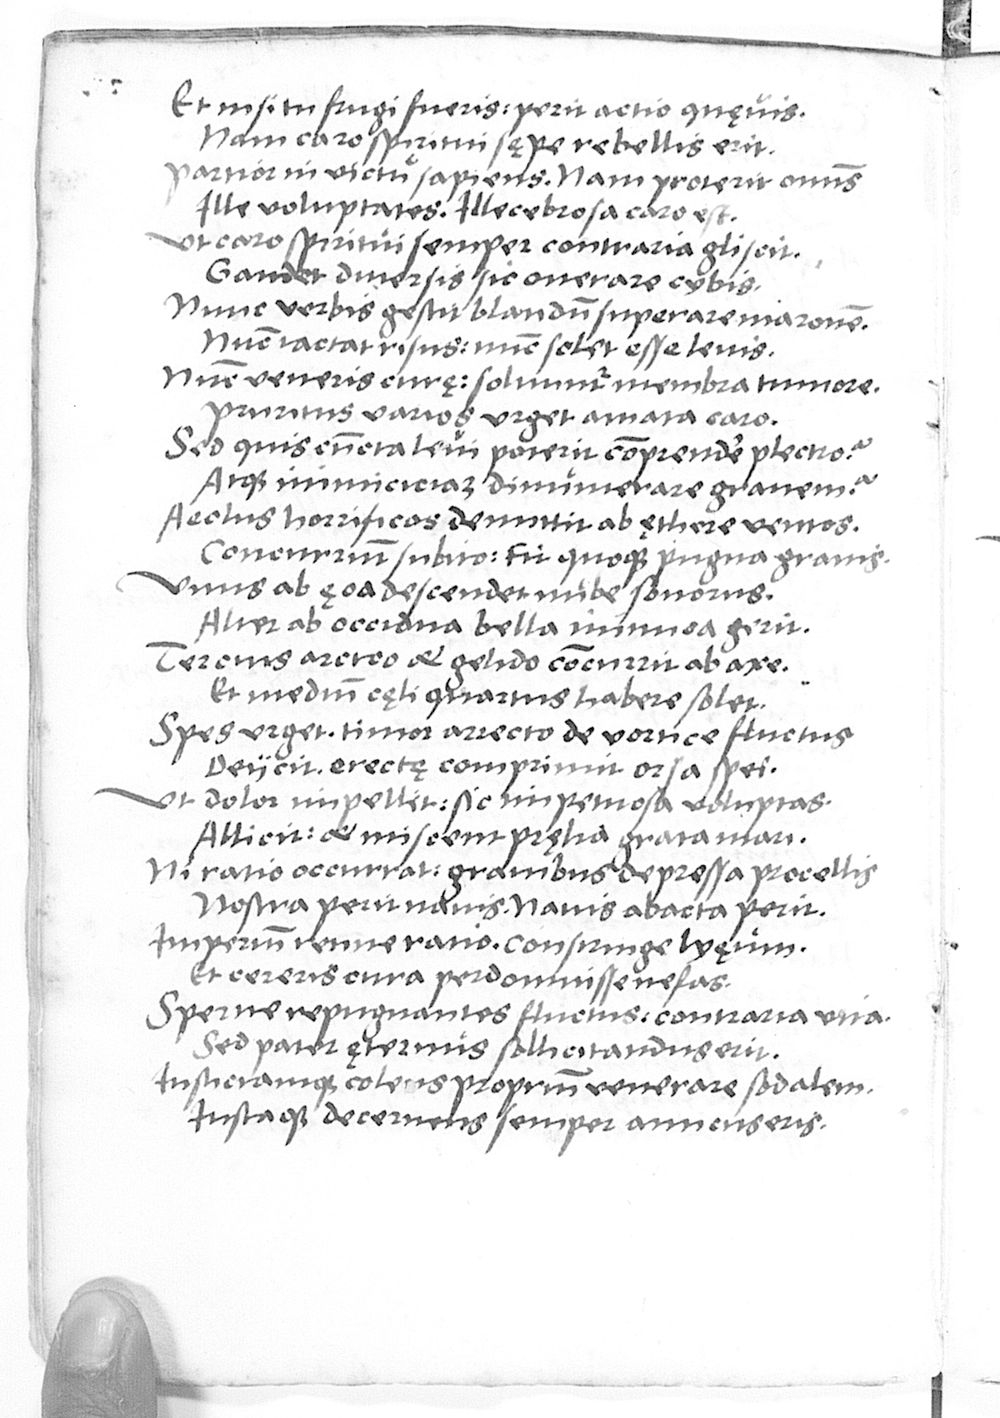 Et nisi tu frugi fueris: perit actio quęuis.
Nam caro spiritui sępe rebellis erit.
Partior in victu sapiens. Nam proterit om̅s
Ille voluptates. Illecebrosa caro est.
Vt caro spiritui semper contraria gliscit.
Gaudet diuersis sic onerare cybis.
Nunc verbis gestit blandu̅ superare marone̅.
Nu̅c iactat risus: nu̅c solet esse leuis.
Nu̅c veneris curę: soluunt᷑ membra tumore.
Pruritus varios vrget amata caro.
Sed quis cu̅cta leui poterit co̅prender̉ plectro?
Atqꝫ inimiciciaꝝ dinumerare grauem?
Aeolus horrificos demittit ab ęthere ventos.
Concurru̅t subito: Fit quoqꝫ pugna grauis.
Vnus ab ęoa descendet nube sonorus.
Alter ab occidua bella inimica gerit.
Tercius arctoo & gelido co̅currit ab axe.
Et mediu̅ cęli quartus habere solet.
Spes vrget. timor arrecto de vortice fluctus
Deijcit. erectę comprimit orsa spei.
Vt dolor impellit: sic impetuosa voluptas.
Allicit: & miscent pręlia grata mari.
Ni ratio occurrat: grauibus depressa procellis
Nostra perit nauis. Nauis abacta perit.
Imperiu̅ tenue ratio. Constringe lyęum.
Et cereris cura perdomuisse nefas.
Sperne repugnantes fluctus: contraria vita.
Sed pater ęternus sollicitandus erit.
Iusticiamqꝫ colens propriu̅ venerare sodalem.
Iustaqꝫ decernens semper amicus eris.